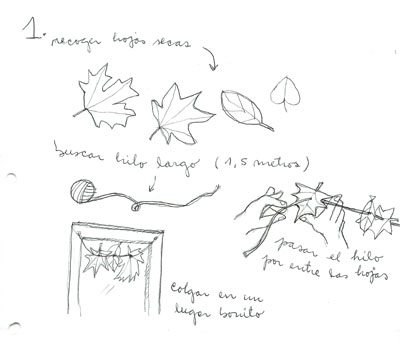 1. recoger hojas secas
buscar hilo largo (1,5 metros)
pasar el hilo
por entre las hojas
colgar en un
lugar bonito